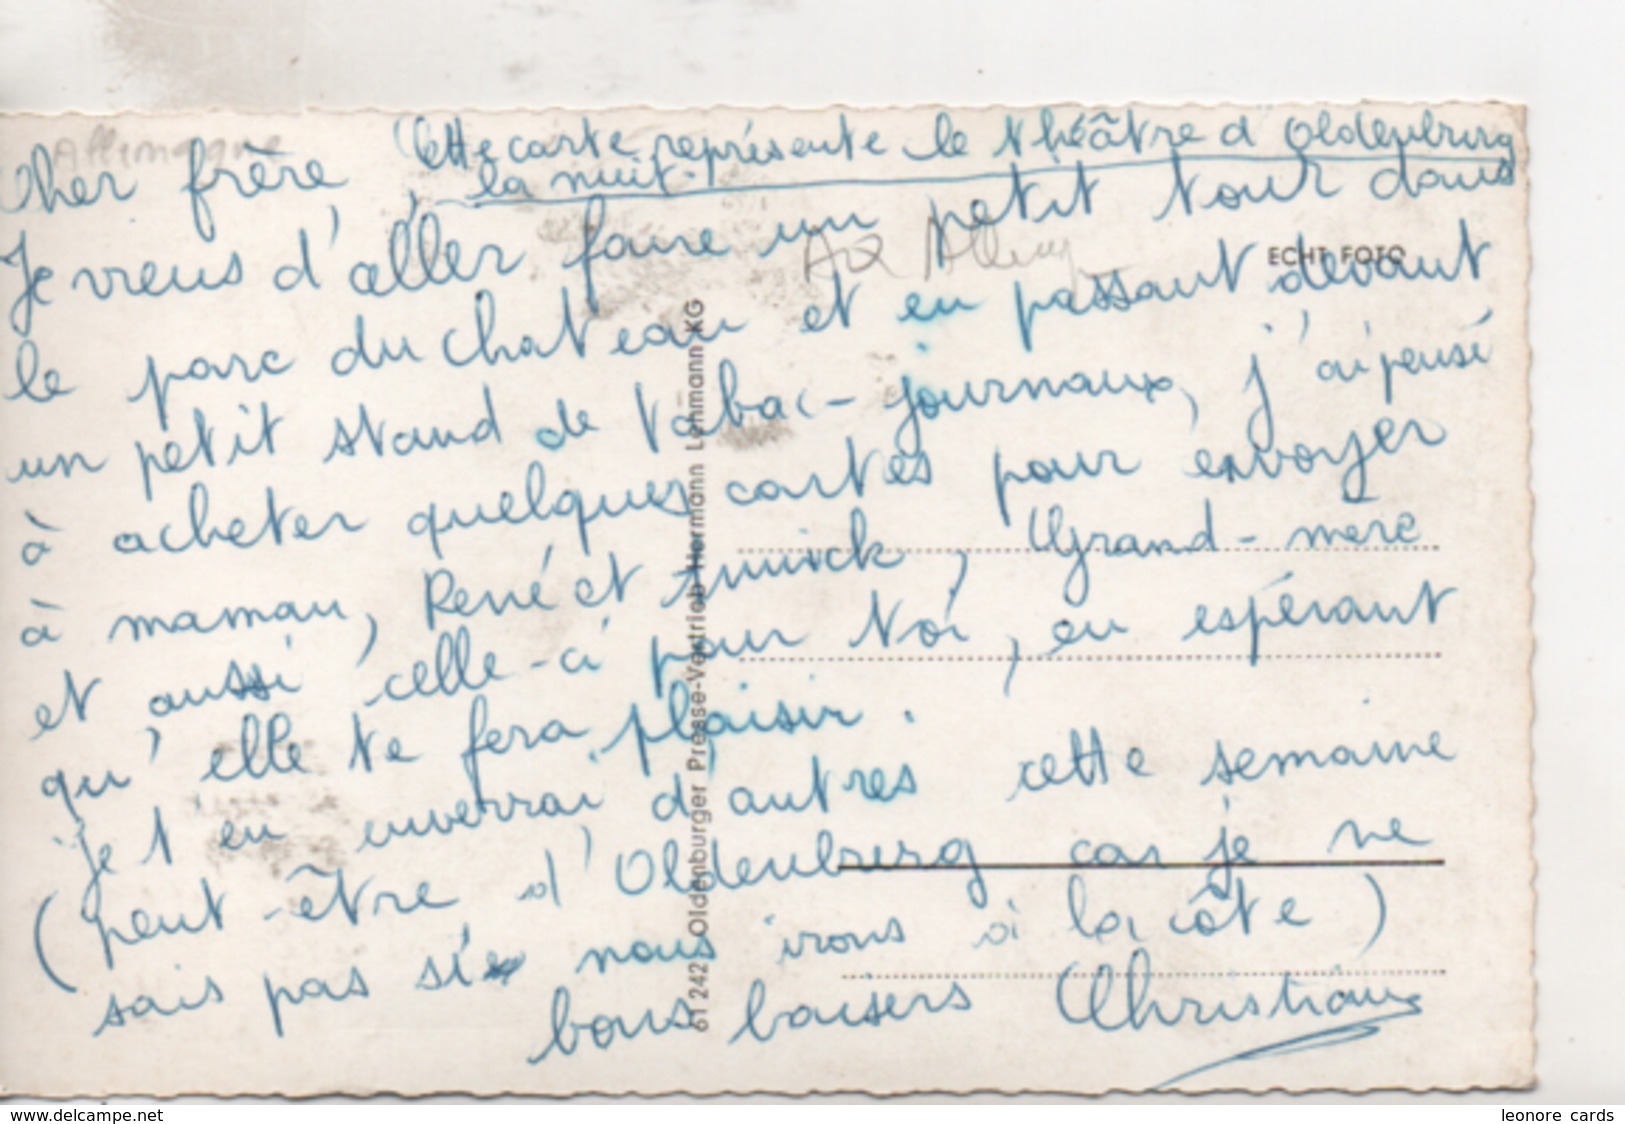 Allemagne
Cette carte représente le théâtre d'Oldenburg
la nuit.
Cher frère,
Je viens d'aller faire un petit tour dans
le parc du chateau et en passant devant
un petit stand de tabac-journaux, j'ai pensé
à acheter quelques cartes pour envoyer
à maman, René et Annick, Grand-mere
et aussi celle-ci pour toi, en espérant
qu'elle te fera plaisir.
Je t'en enverrai d'autres cette semaine
(peut-être d'Oldenburg car je ne
sais pas si nous irons à la côte)
bons baisers Christiane
ECHT FOTO
61 242 Oldenburger Presse-Vertrieb Hermann Lehmann KG
www.delcampe.net
leonore cards